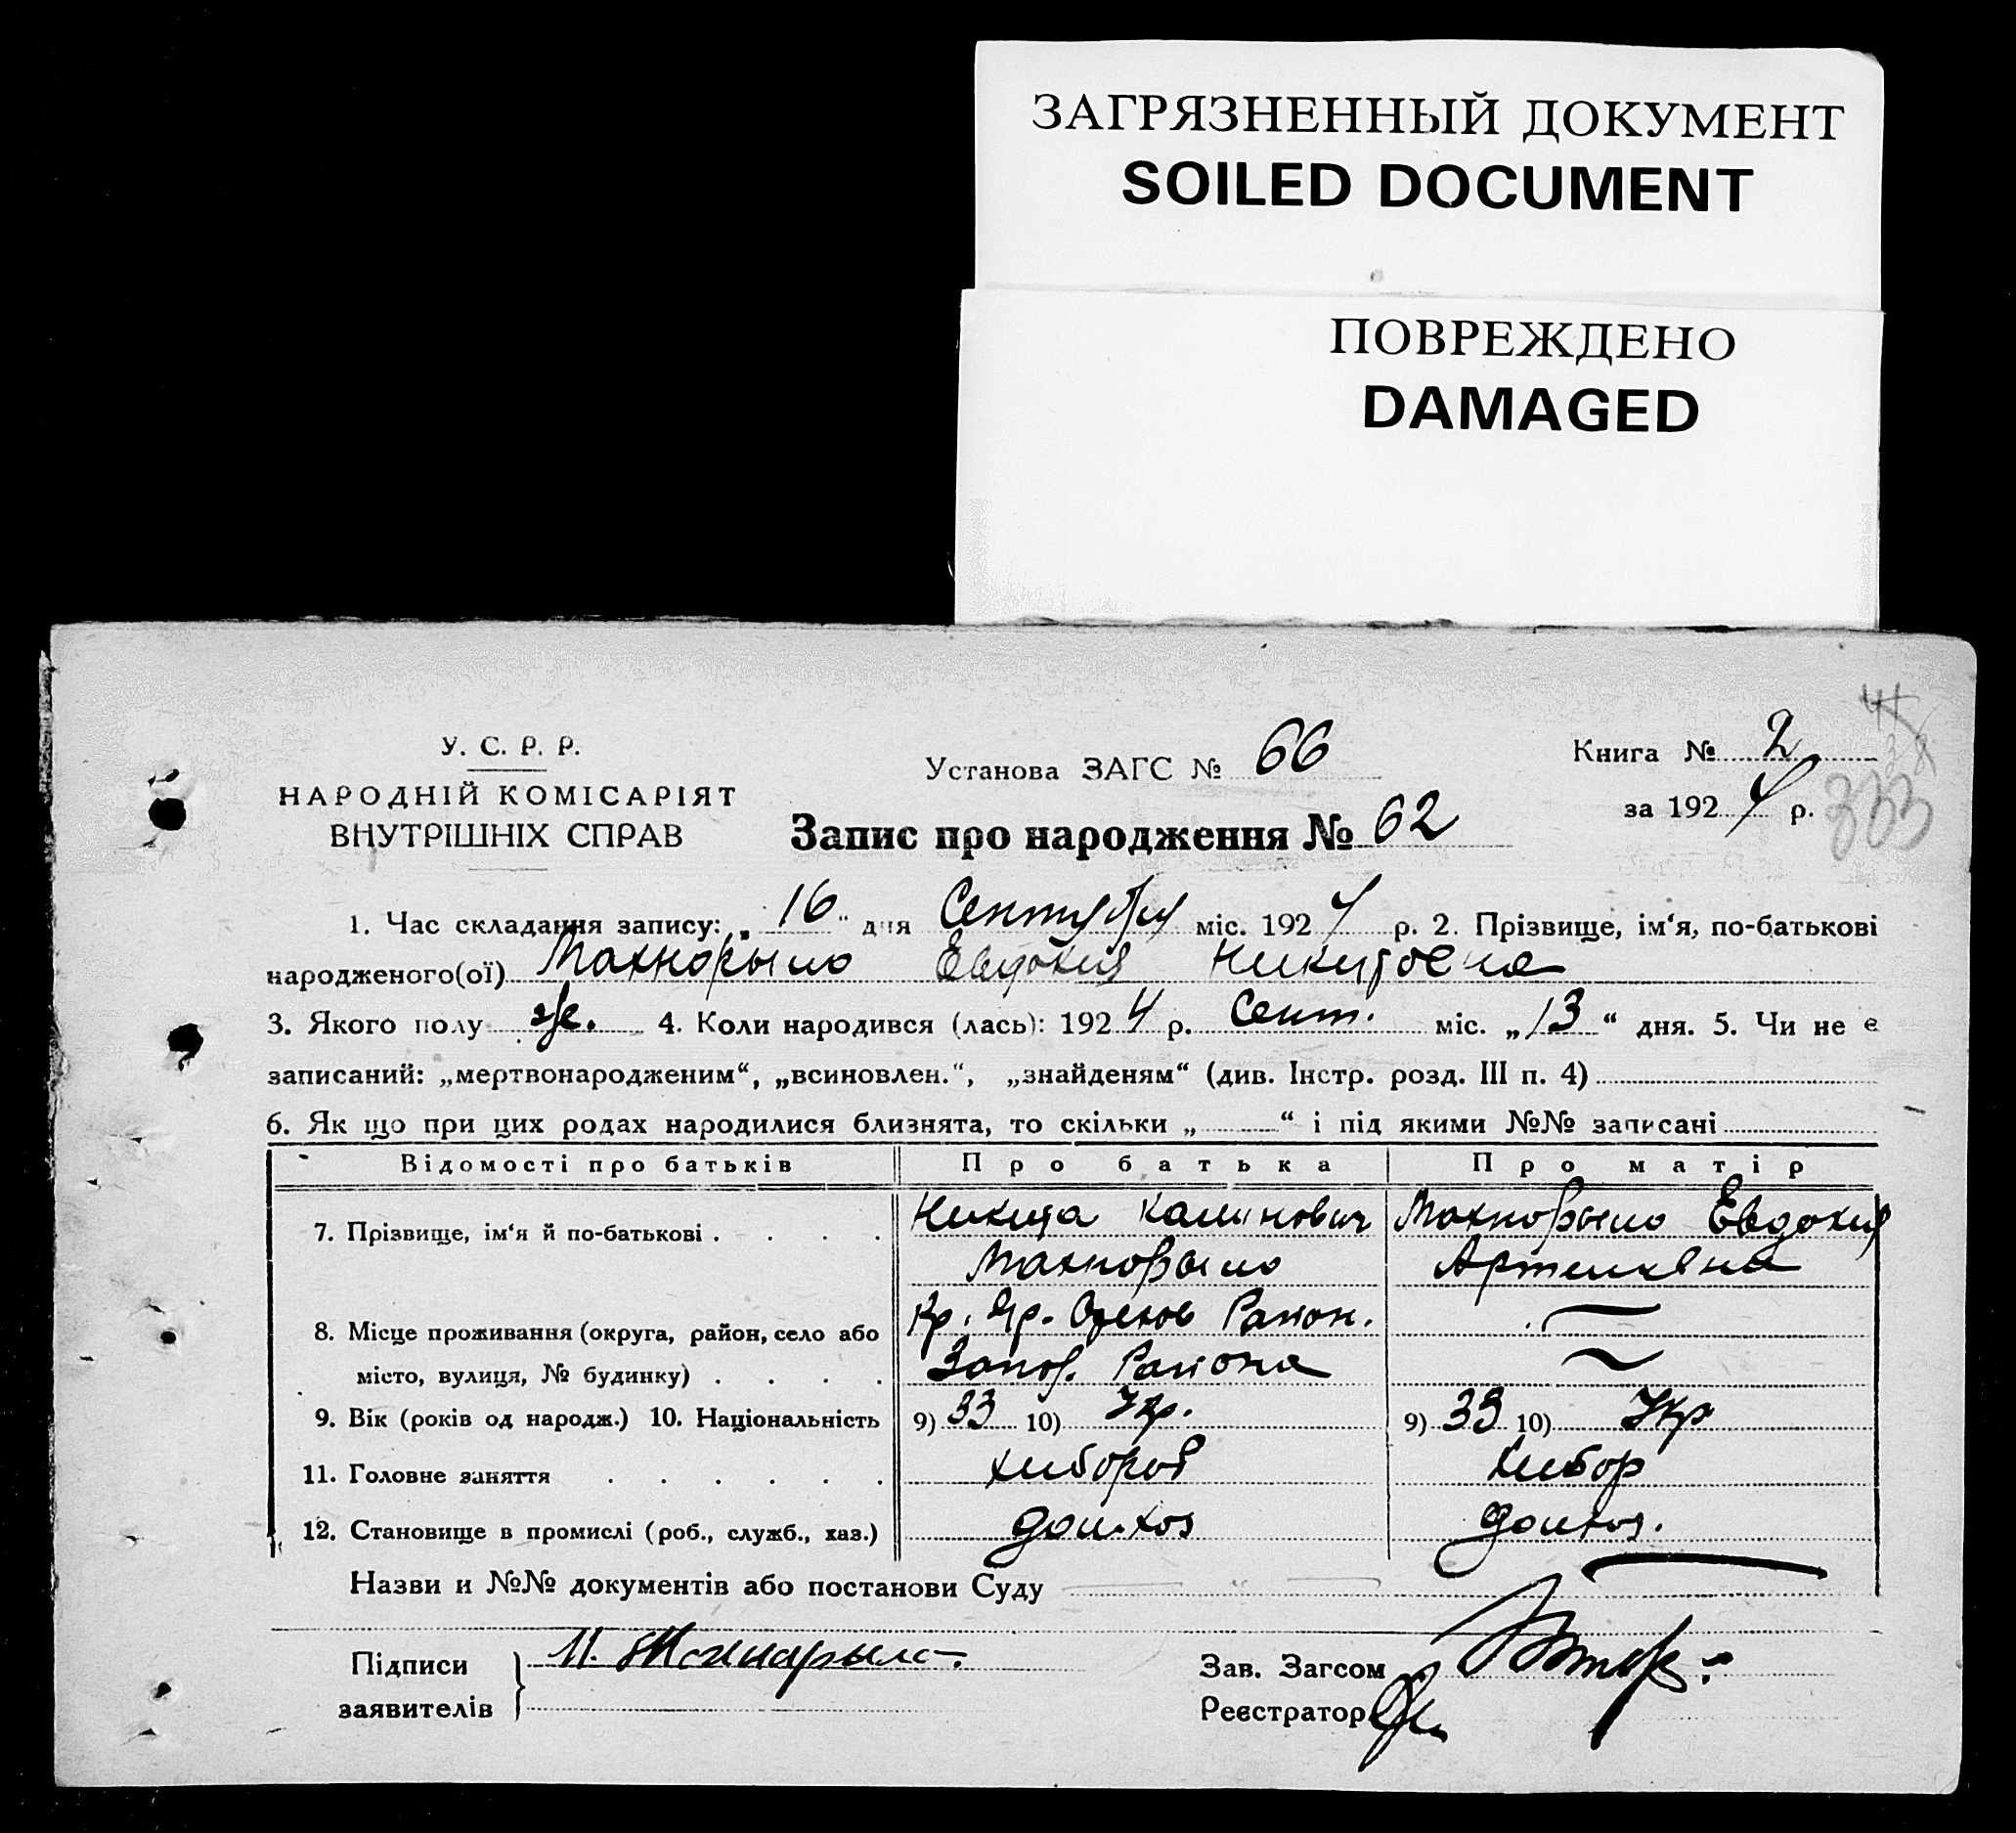 ЗАГРЯЗНЕННЫЙ ДОКУМЕНТ
SOILED DOCUMENT
ПОВРЕЖДЕНО
DAMAGED
У. С. Р. Р.
НАРОДНІЙ КОМІСАРІЯТ
ВНУТРІШНІХ СПРАВ
Установа ЗАГС № 66
Запис про народження № 62
Книга № 2
за 1924 р.
333
1. Час складання запису: „16“ дня Сентября міс. 1924 р. 2. Прізвище, ім‘я, по-батькові
народженого(ої) Махнорыло Евдокия Никитовна
3. Якого полу же. 4. Коли народився (лась): 1924 р. Сент. міс. „13“ дня. 5. Чи не є
записаний: „мертвонародженим“, „всиновлен.“, „знайденям“ (див. Інстр. розд. III п. 4)
6. Як що при цих родах народилися близнята, то скільки „ “ і під якими №№ записані
Відомості про батьків Про батька Про матір
7. Прізвище, ім‘я й по-батькові . . . . Никита Калинович Махнорыло Евдокия
Махнорыло Артемовна
8. Місце проживання (округа, район, село або Кр. Яр. Район.
місто, вулиця, № будинку) . . . . Запор. Района
9. Вік (років од народж.) 10. Національність 9) 33 10) Укр. 9) 33 10) Укр
11. Головне заняття . . . . . . хлебороб хлебор
12. Становище в промислі (роб., служб., хаз.) домхоз домхоз.
Назви и №№ документів або постанови Суду
Підписи Н. Махнарыло. Зав. Загсом
заявителів Реєстратор